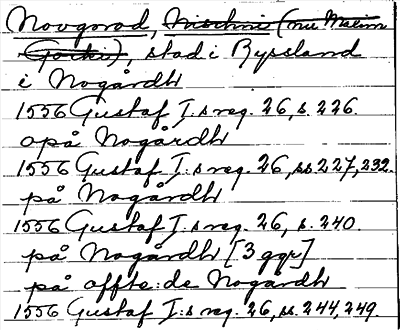 Novgorod, Nischni (nu Maxim
Gorki), stad i Ryssland
i Nogårdh
1556 Gustaf I:s reg. 26, s. 226.
opå Nogårdh
1556 Gustaf I:s reg. 26, ss. 227, 232.
på Nogårdh
1556 Gustaf I:s reg. 26, s. 240.
på Nogårdh [3 ggr]
på offte:de Nogårdh
1556 Gustaf I:s reg. 26, ss. 244, 249.